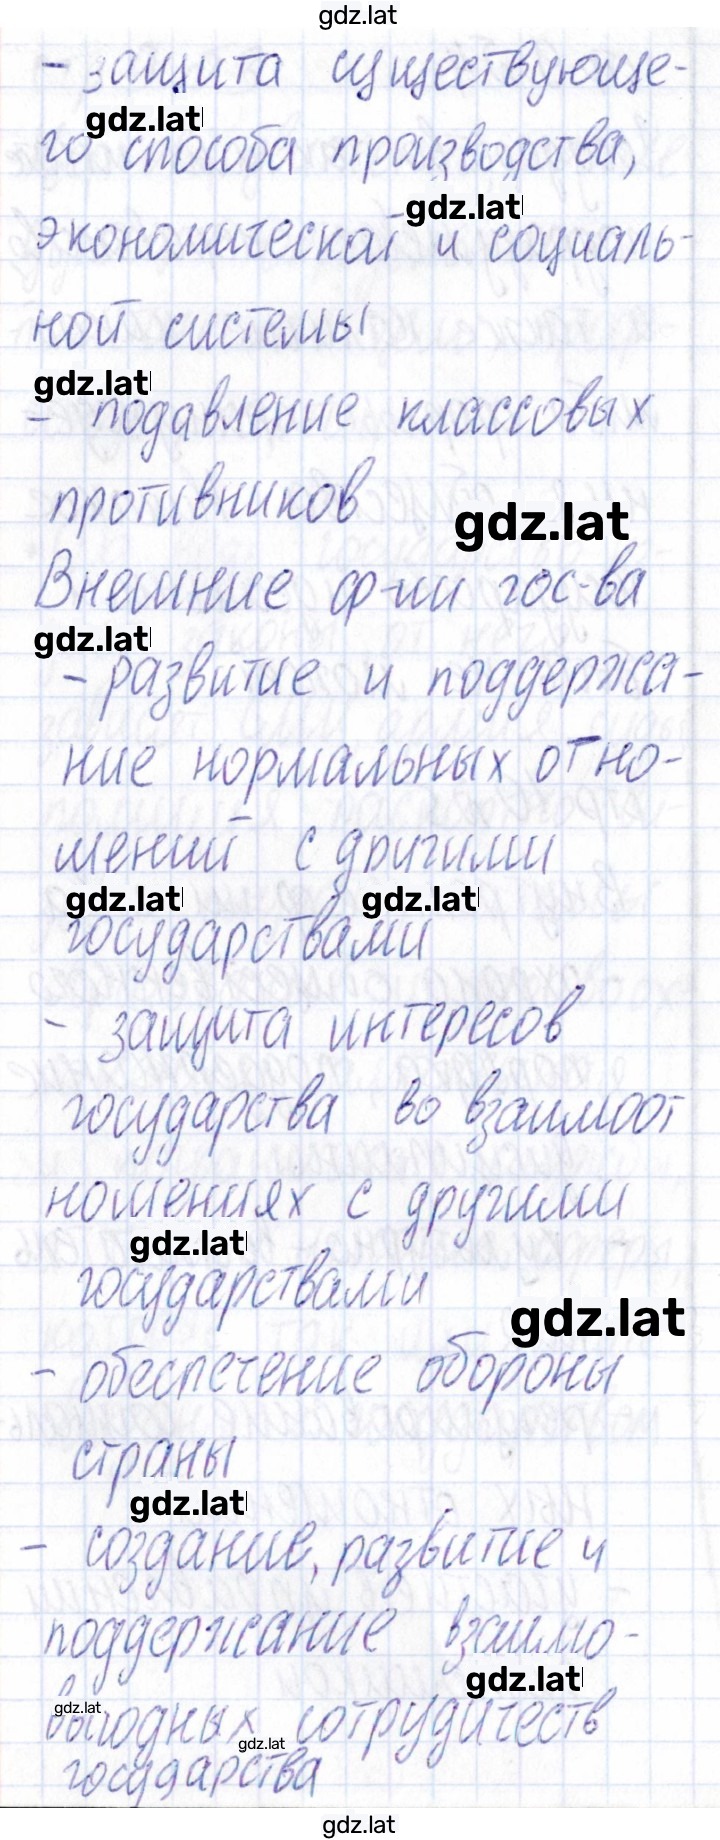 gdz.lat
- защита существующе-
gdz.lat
го способа производства,
gdz.lat
экономической и социаль-
ной системы
gdz.lat
- подавление классовых
противников
gdz.lat
Внешние ф-ии гос-ва
gdz.lat
- развитие и поддержа-
ние нормальных отно-
шений с другими
gdz.lat gdz.lat
государствами
- защита интересов
государства во взаимоот
ношениях с другими
gdz.lat
государствами
gdz.lat
- обеспечение обороны
страны
gdz.lat
- создание, развитие и
поддержание взаимо-
gdz.lat
gdz.lat
выгодных сотрудичеств
gdz.lat
государства
gdz.lat